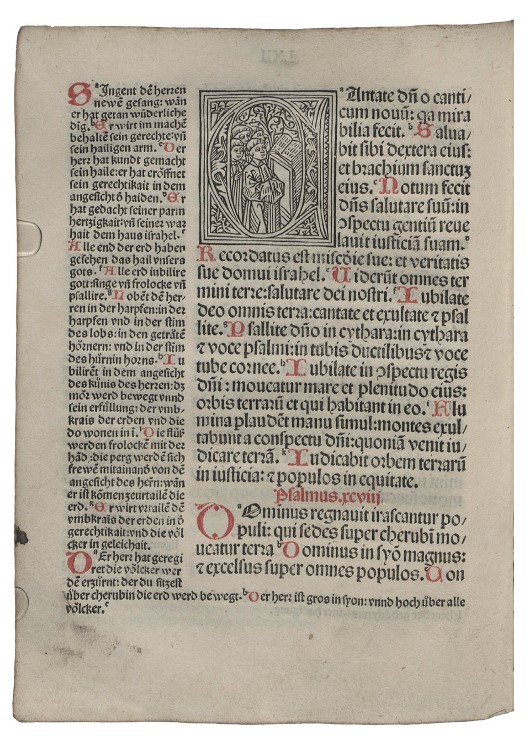 Singent dē herren
newē gesang: wān
er hat getan wūderliche
dīg. Er wirt im machē
behaltē sein gerechte: vñ
sein hailigen arm. Der
herr hat kundt gemacht
sein haile: er hat eröffnet
sein gerechtikait in dem
angesicht ð haiden. Er
hat gedacht seiner parm
hertzigkait: vñ seiner war
hait dem hauß israhel.
Alle end der erd haben
gesehen das hail vnsers
gots. Alle erd iubilire
gott: singe vñ frolocke vñ
psallire. Lobēt dē her-
ren in der harpfen: in der
harpfen vnd in der stim
des lobs: in den geträtē
hörnern: vnd in der stim
des hürnin horns. Iu
bilirēt in dem angesicht
des künis des herren: dz
mör werd bewegt vnnd
sein erfüllung: der vmb-
krais der erden vnd die
do wonen in ī. Die flüß
werden frolockē mit der
häd: die perg werdē sich
frewē mitainanð von dē
angesicht des herrn: wān
er ist kōmen zeurtailē die
erd. Er wirt vrtailē dē
vmbkrais der erden in ð
gerechtikait: vnd die völ
cker in geleichait.
Der herr hat geregi
ret die völcker wer
dē erzürnt: der du sitzest
über cherubin die erd werd bewegt. Der herr ist gros in syon: vnnd hoch über alle
völcker.
Cantate dño o canti-
cum nouū: qa mira
bilia fecit. Salua-
bit sibi dextera eius:
et brachium sanctuz
eius. Notum fecit
dñs salutare suū: in
ↄspectu gentiū reue
lauit iusticiā suam.
Recordatus est miscdie sue: et veritatis
sue domui israhel. Uiderūt omnes ter
mini terre: salutare dei nostri. Iubilate
deo omnis terra: cantate et exultate ⁊ psal
lite. Psallite dño in cythara: in cythara
⁊ voce psalmi: in tubis ductilibus ⁊ voce
tube cornee. Iubilate in ↄspectu regis
dñi: moueatur mare et plenitudo eius:
orbis terrarū et qui habitant in eo. Flu
mina plaudēt manu simul: montes exul-
tabunt a conspectu dñi: quoniā venit iu-
dicare terrā. Iudicabit orbem terrarū
in iusticia: ⁊ populos in equitate.
Psalmus. xcviij
Dominus regnauit irascantur po-
puli: qui sedes super cherubī mo-
ueatur terra Dominus in syō magnus:
⁊ excelsus super omnes populos. Con